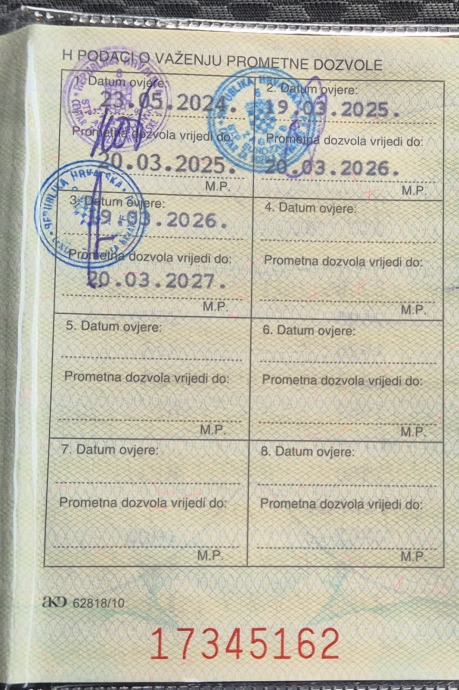 H PODACI O VAŽENJU PROMETNE DOZVOLE
1. Datum ovjere:
23.05.2024.
Prometna dozvola vrijedi do:
20.03.2025.
M.P.
2. Datum ovjere:
19.03.2025.
Prometna dozvola vrijedi do:
20.03.2026.
M.P.
REPUBLIKA HRVATSKA
3. Datum ovjere:
19.03.2026.
Prometna dozvola vrijedi do:
20.03.2027.
M.P.
4. Datum ovjere:
Prometna dozvola vrijedi do:
M.P.
5. Datum ovjere:
Prometna dozvola vrijedi do:
M.P.
6. Datum ovjere:
Prometna dozvola vrijedi do:
M.P.
7. Datum ovjere:
Prometna dozvola vrijedi do:
M.P.
8. Datum ovjere:
Prometna dozvola vrijedi do:
M.P.
AKD 62818/10
17345162